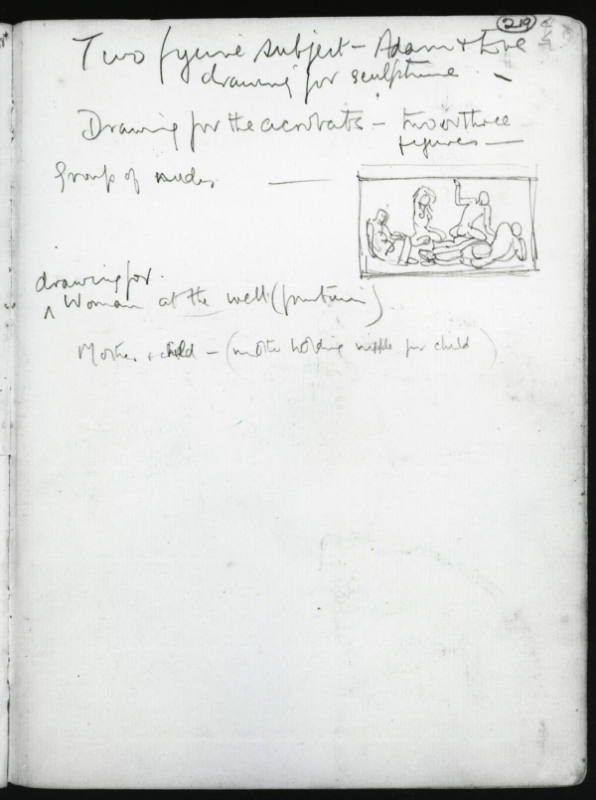 219
Two figure subject - Adam + Eve
drawing for sculpture -
Drawing for the acrobats - two or three
figures -
Group of nudes -
drawing for
^ Woman at the well (fountain)
Mother + child - (mother holding nipple for child)